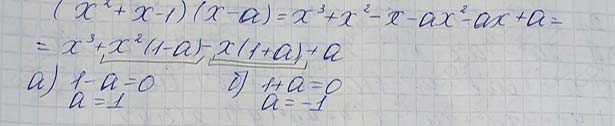 (x²+x-1)(x-a)=x³+x²-x-ax²-ax+a=
=x³+x²(1-a)-x(1+a)+a
а) 1-a=0 б) 1+a=0
a=1 a=-1